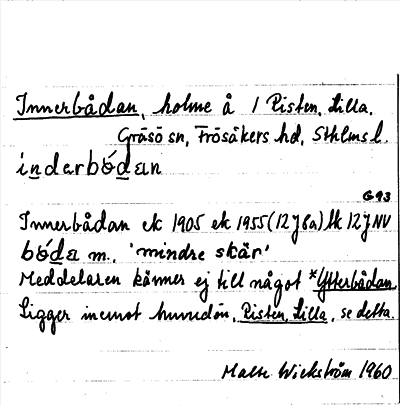 Innerbådan, holme å / Risten, Lilla,
Gräsö sn, Frösåkers hd, Sthlms l.
inderbódan
G93
Innerbådan ek 1905 ek 1955 (12J6a) tk 12J NV
bóda m., 'mindre skär'
Meddelaren känner ej till något *Ytterbådan.
Ligger inemot huvudön, Risten, Lilla, se detta.
Malte Wickström 1960